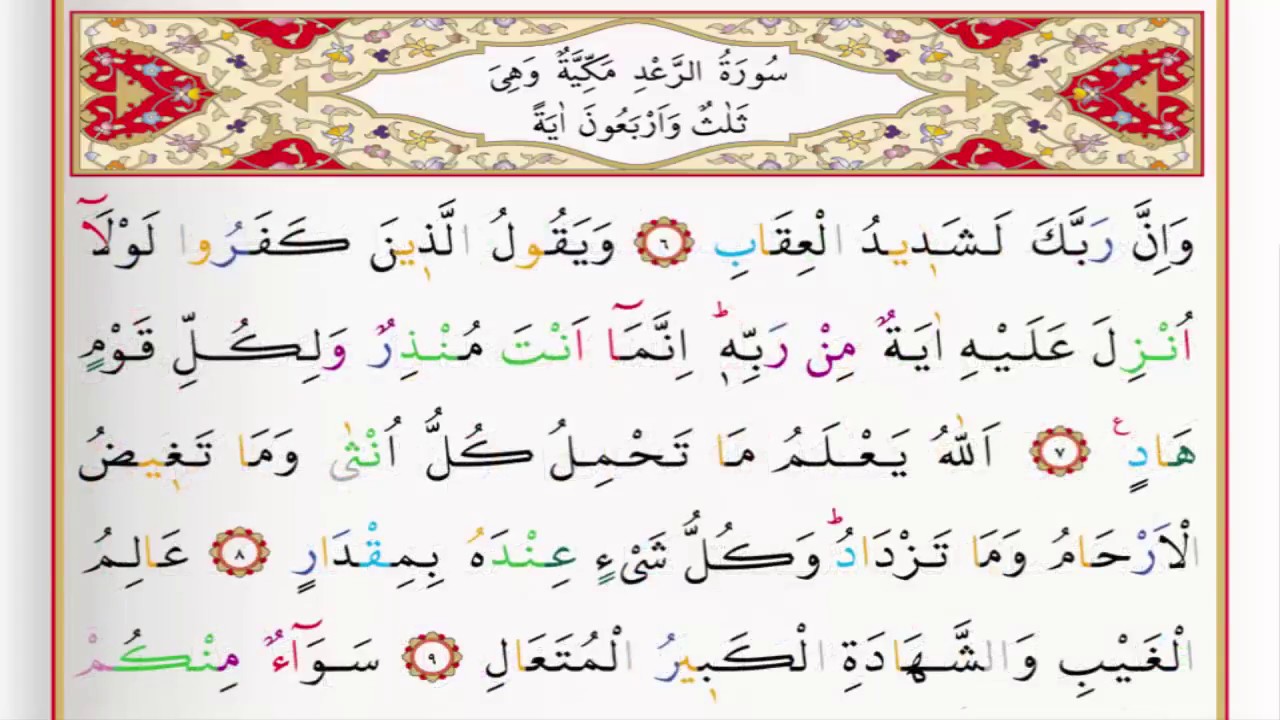 سُورَةُ الرَّعْدِ مَكِّيَّةٌ وَهِىَ
ثَلٰثٌ وَاَرْبَعُونَ اٰيَةً
وَاِنَّ رَبَّكَ لَشَد۪يدُ الْعِقَابِ ٦ وَيَقُولُ الَّذ۪ينَ كَفَرُوا لَوْلَٓا
اُنْزِلَ عَلَيْهِ اٰيَةٌ مِنْ رَبِّه۪ۜ اِنَّمَٓا اَنْتَ مُنْذِرٌ وَلِكُلِّ قَوْمٍ
هَادٍ ع ٧ اَللّٰهُ يَعْلَمُ مَا تَحْمِلُ كُلُّ اُنْثٰى وَمَا تَغ۪يضُ
الْاَرْحَامُ وَمَا تَزْدَادُۜ وَكُلُّ شَىْءٍ عِنْدَهُ بِمِقْدَارٍ ٨ عَالِمُ
الْغَيْبِ وَالشَّهَادَةِ الْكَب۪يرُ الْمُتَعَالِ ٩ سَوَٓاءٌ مِنْكُمْ